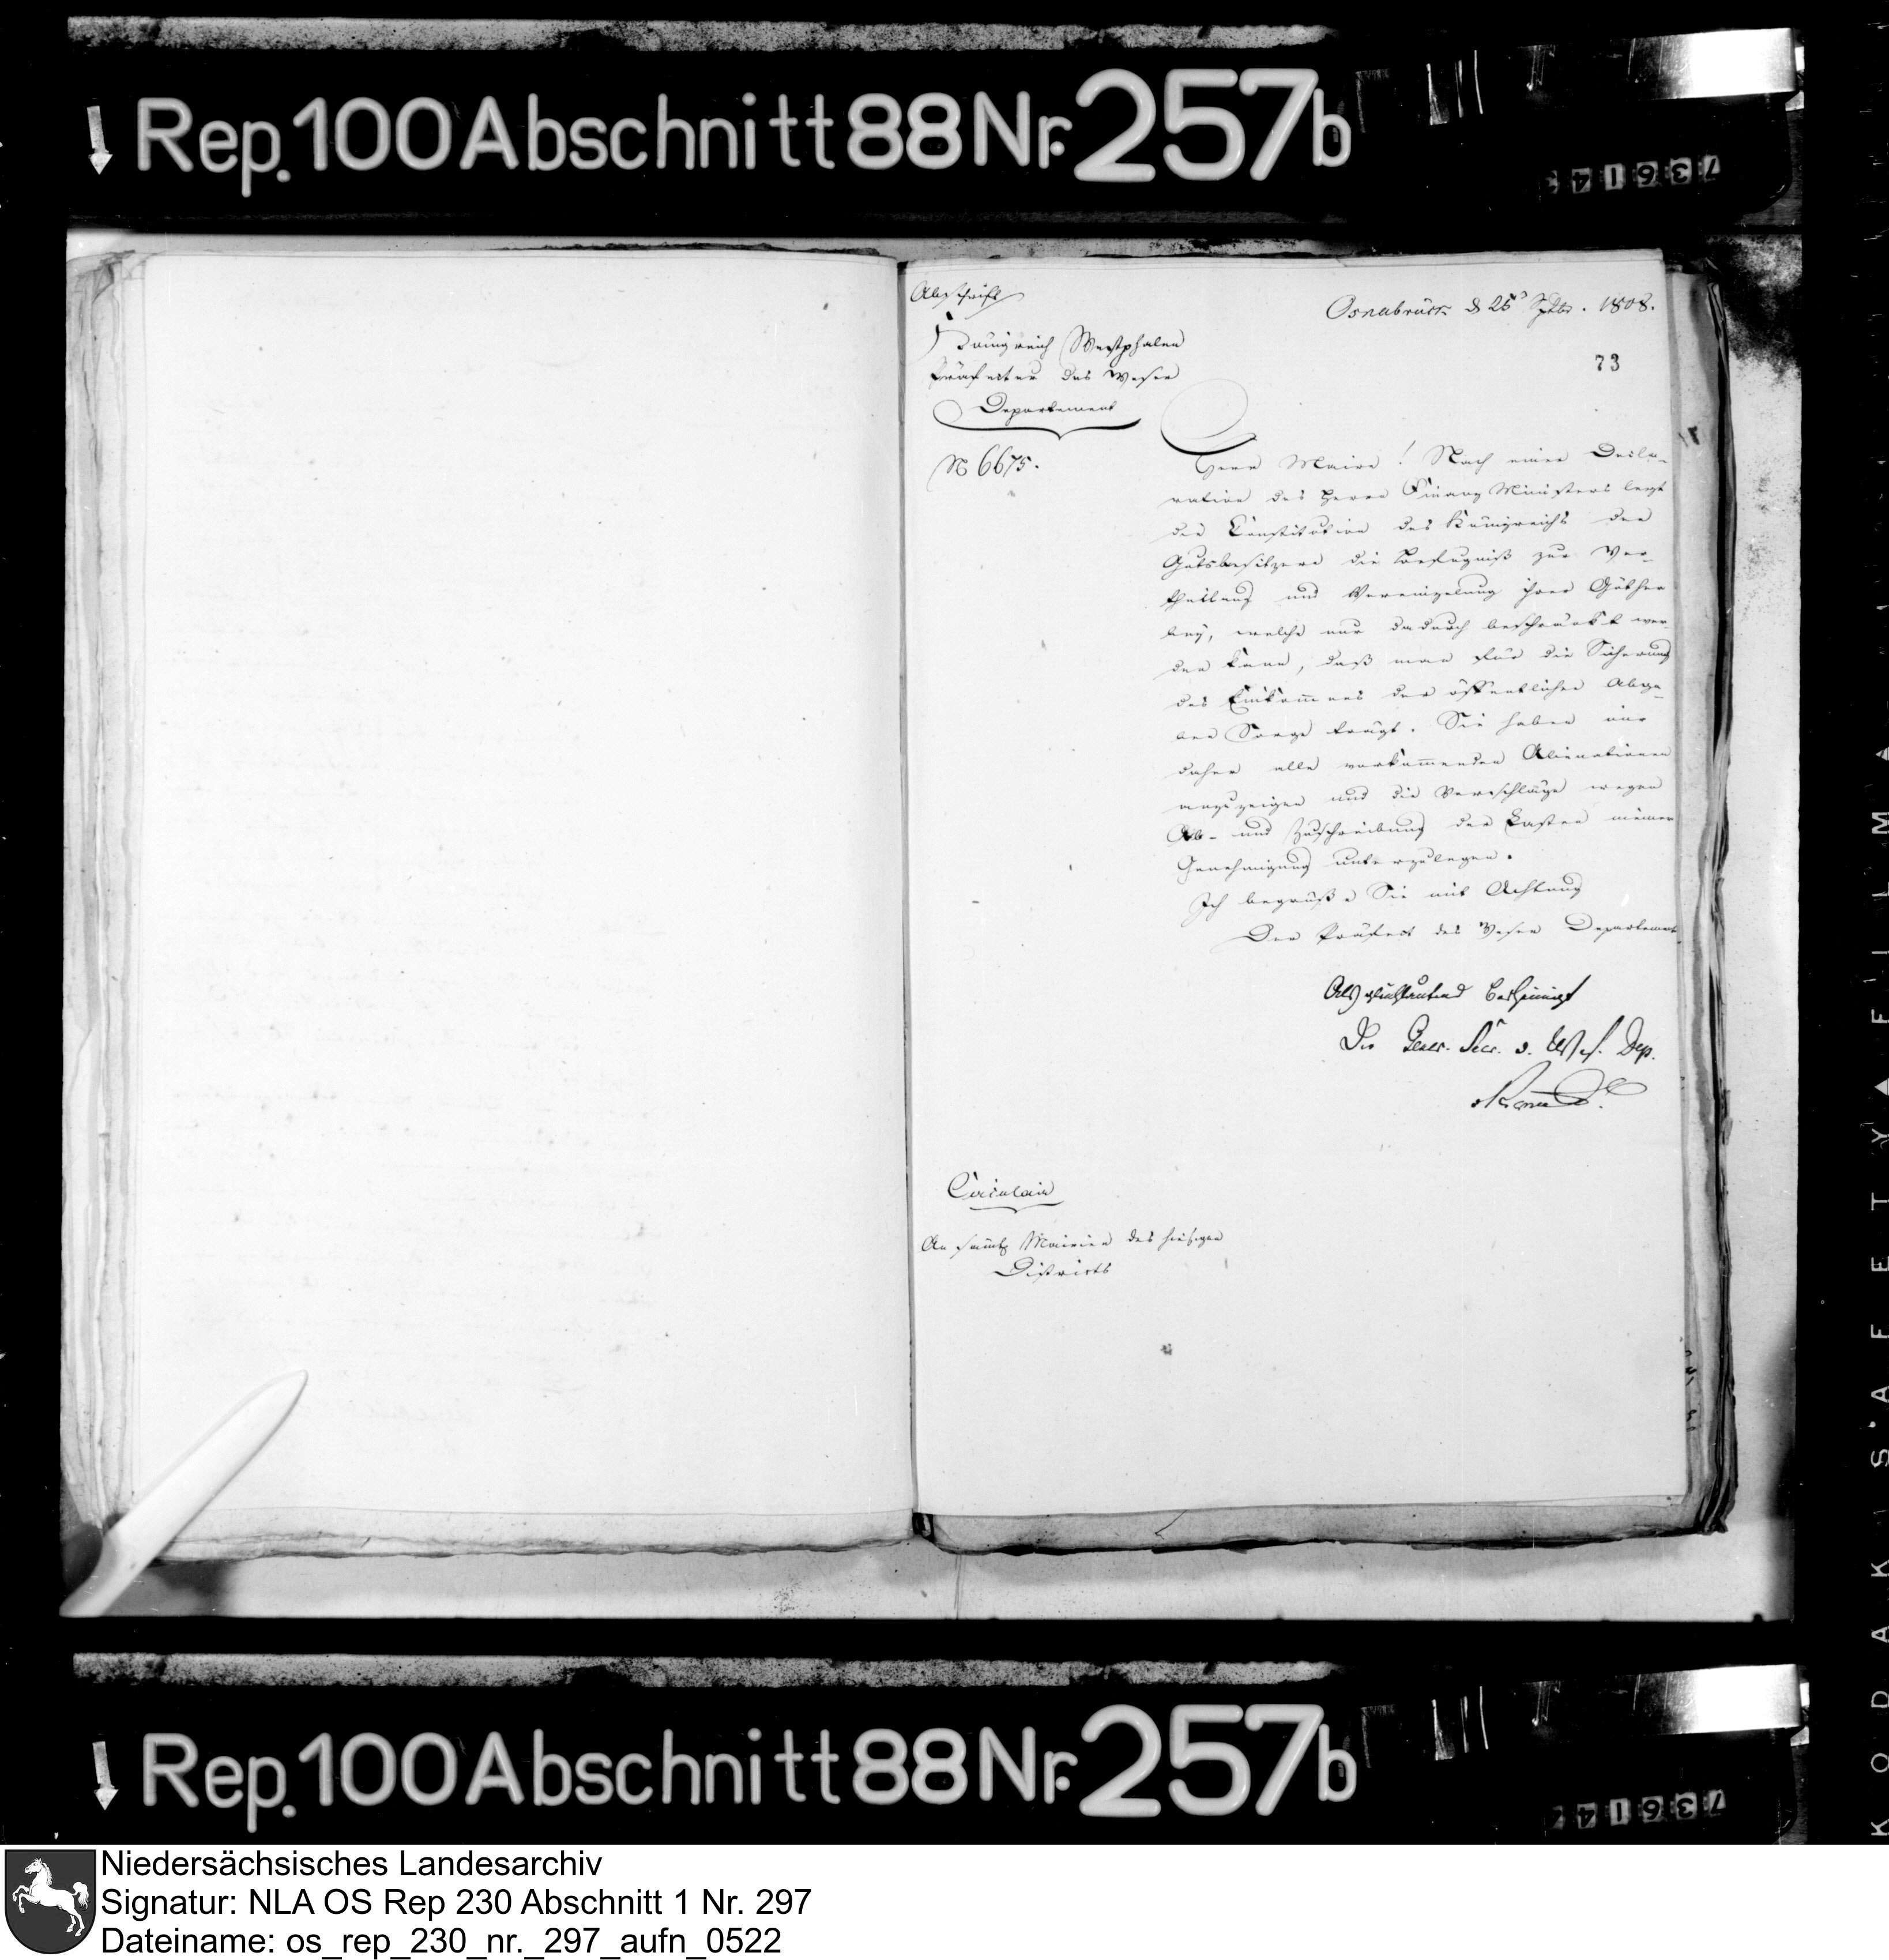 Rep. 100 Abschnitt 88 Nr. 257b
736 14
Abschrift
Osnabrück d 26 Septbr. 1808.
Königreich Westphalen
73
Präfectur des Weser
Departement
N 6675.
Herr Maire! Nach einer Decla-
ration des Herrn Finanz Ministers legt
die Constitution des Königreichs den
Gutsbesitzern die Befugniß zur Ver-
theilung und Vereinzelung ihrer Güther
bey, welche nur dadurch beschränkt wer-
den kann, daß man für die Sicherung
des Einkommens der öffentlichen Abga-
ben Sorge trägt. Sie haben mir
daher alle vorkommenden Alienationen
anzuzeigen und die Vorschläge wegen
Ab- und Zuschreibung der Lasten meiner
Genehmigung unterzulegen.
Ich begrüße Sie mit Achtung
Der Präfect des Weser Departements
Als gleichlautend bescheinigt
Der Gener. Secr. d. Wes. Dep.
Circulair
An sämtl Mairien des hiesigen
Districts
Rep. 100 Abschnitt 88 Nr. 257b
736 14
KODAK SAFETY FILM
Niedersächsisches Landesarchiv
Signatur: NLA OS Rep 230 Abschnitt 1 Nr. 297
Dateiname: os_rep_230_nr._297_aufn_0522